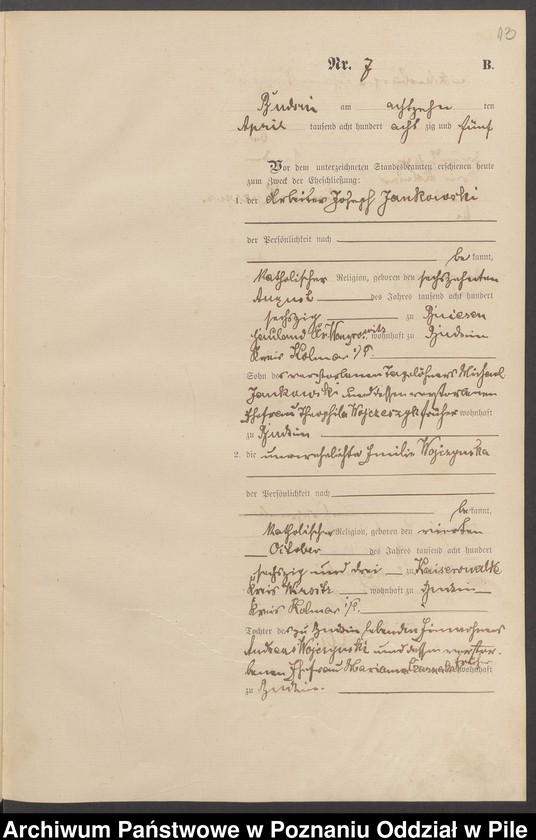 13
Nr. 7 B.
Budsin am achtzehn ten
April tausend acht hundert acht zig und fünf
Vor dem unterzeichneten Standesbeamten erschienen heute
zum Zweck der Eheschließung:
1. der Arbeiter Joseph Jankowski
der Persönlichkeit nach
be kannt,
katholischer Religion, geboren den sechszehnten
August des Jahres tausend acht hundert
sechszig zu
hauland Kr. Wongrowitz, wohnhaft zu Budsin
Kreis Kolmar i/P.
Sohn des verstorbenen Tagelöhners Michael
Jankowski und dessen verstorbenen
Ehefrau Theophila früher wohnhaft
zu Budsin
2. die unverehelichte Emilie Wojzynska
der Persönlichkeit nach
be kannt,
katholischer Religion, geboren den vierten
October des Jahres tausend acht hundert
sechszig und drei zu Kaiserswalde
Kreis Wirsitz wohnhaft zu Budsin
Kreis Kolmar i/P.
Tochter des zu Budsin lebenden Einwohners
Andreas Wojzynski und dessen verstor-
benen Ehefrau Marianna früher wohnhaft
zu Budsin.
Archiwum Państwowe w Poznaniu Oddział w Pile